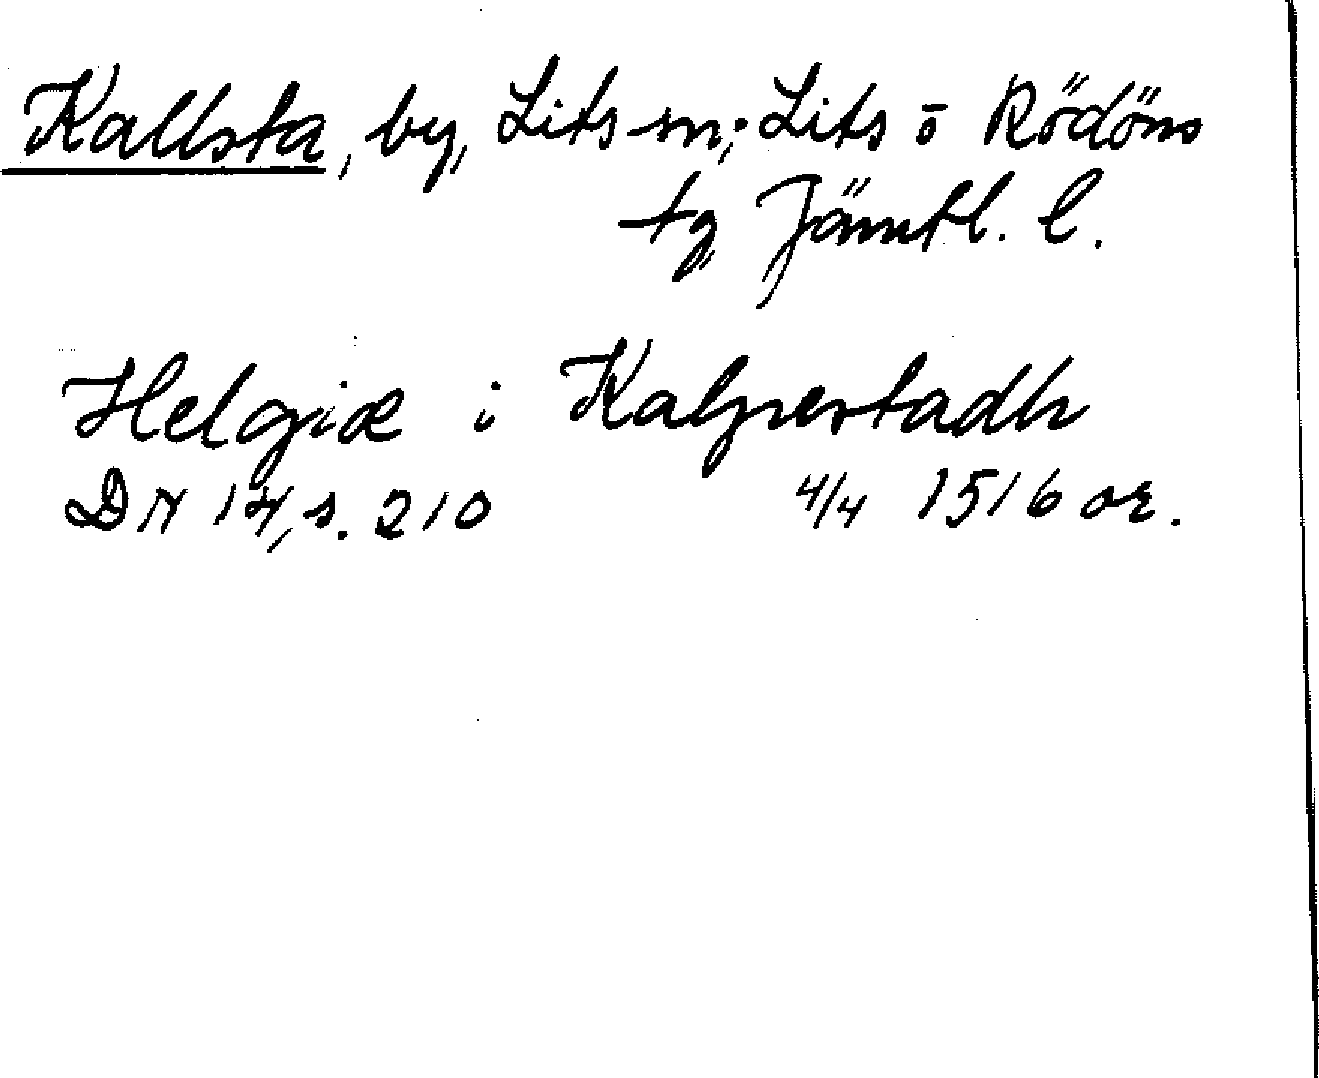 Kallsta, by, Lits sn; Lits o Rödöns
tg Jämtl. l.
Helgiæ i Kalpestadh
DN 14, s. 210 4/4 1516 or.